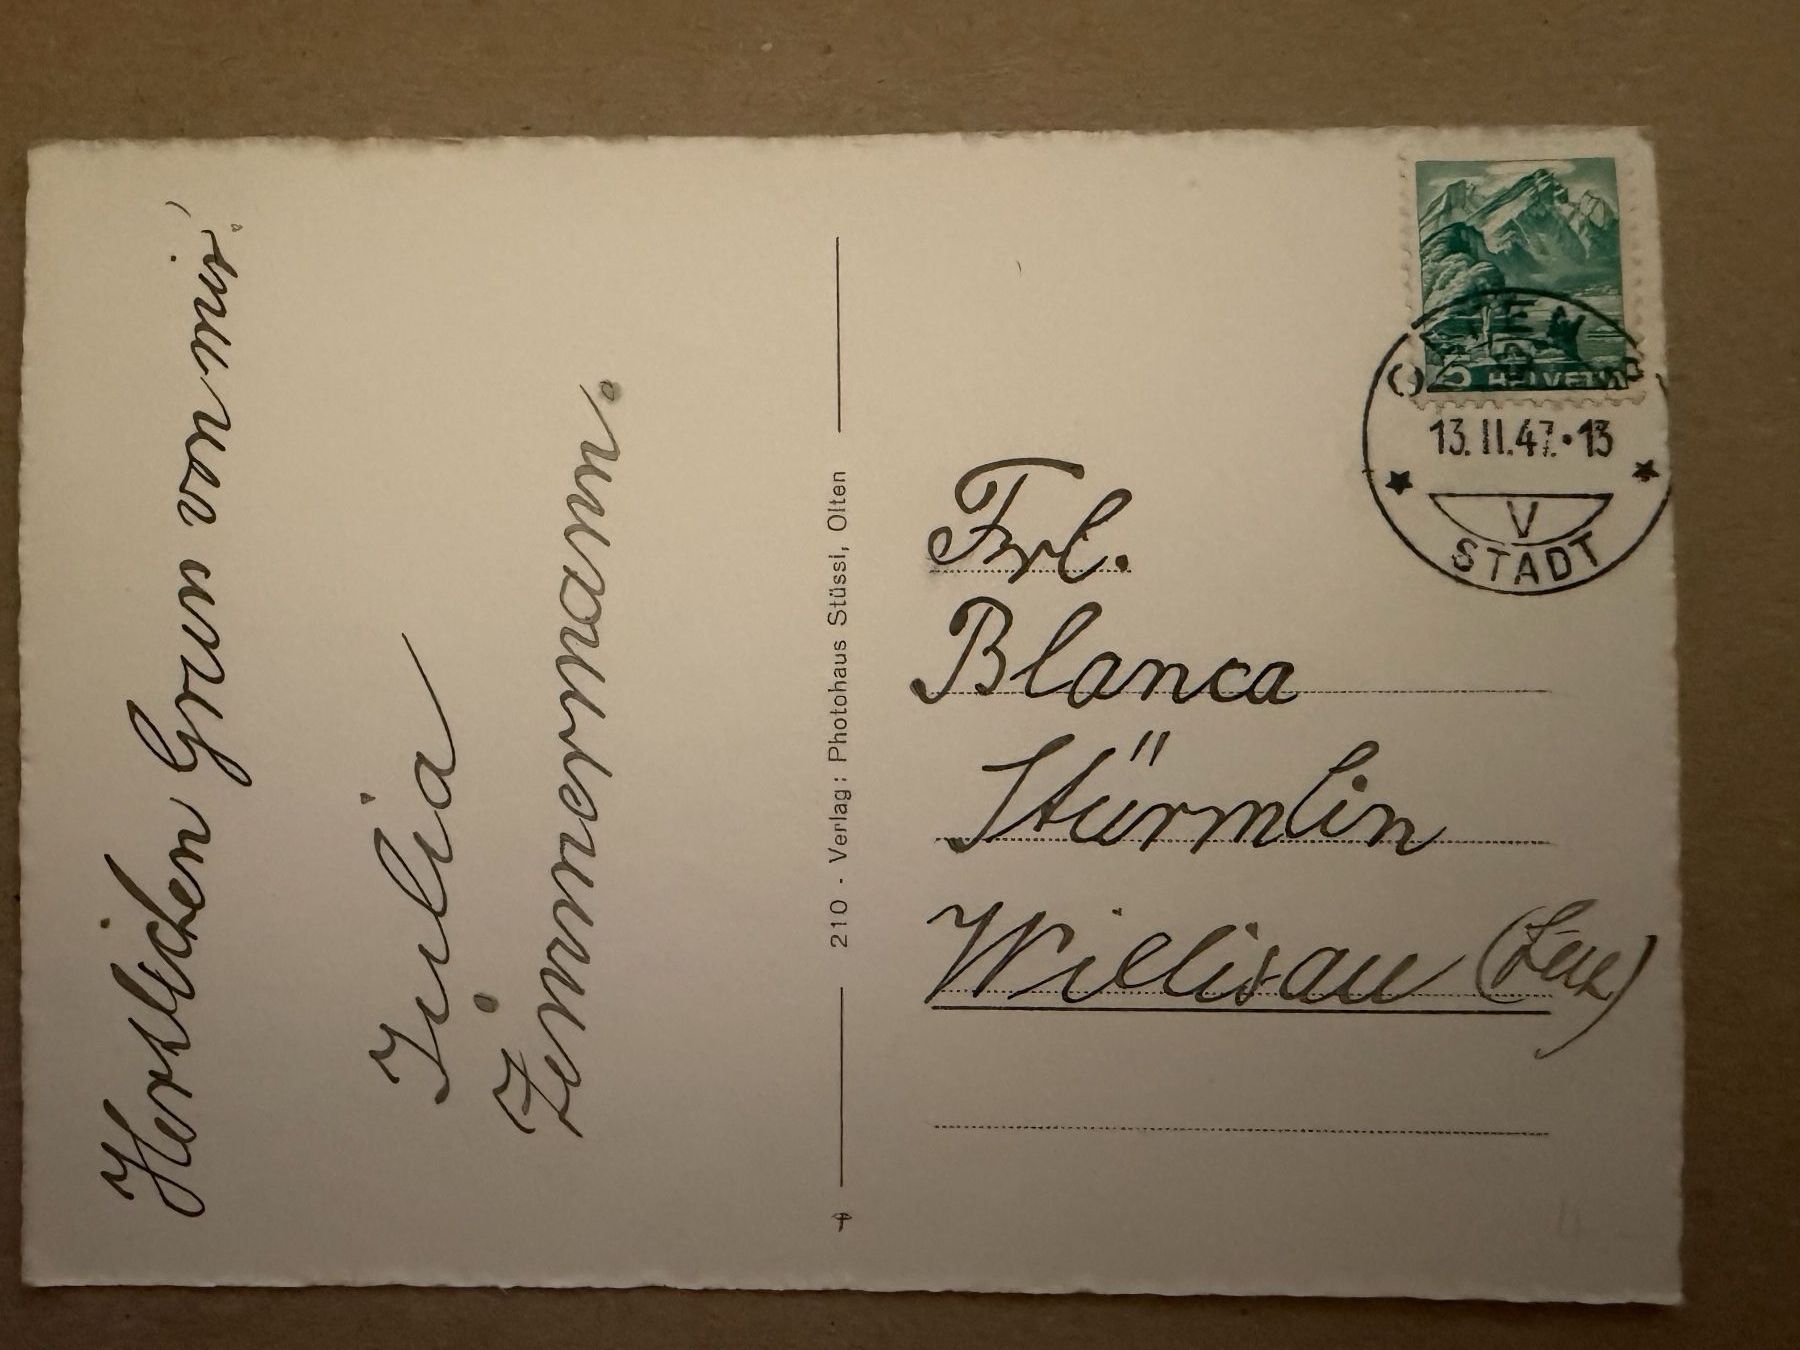 Herzlichen Gruss von
Julia
Zimmermann
210 - Verlag: Photohaus Stüssi, Olten
5 HELVETIA
OLTEN
13.II.47.-13
V
STADT
Frl.
Blanca
Stürmlin
Willisau (Luz)